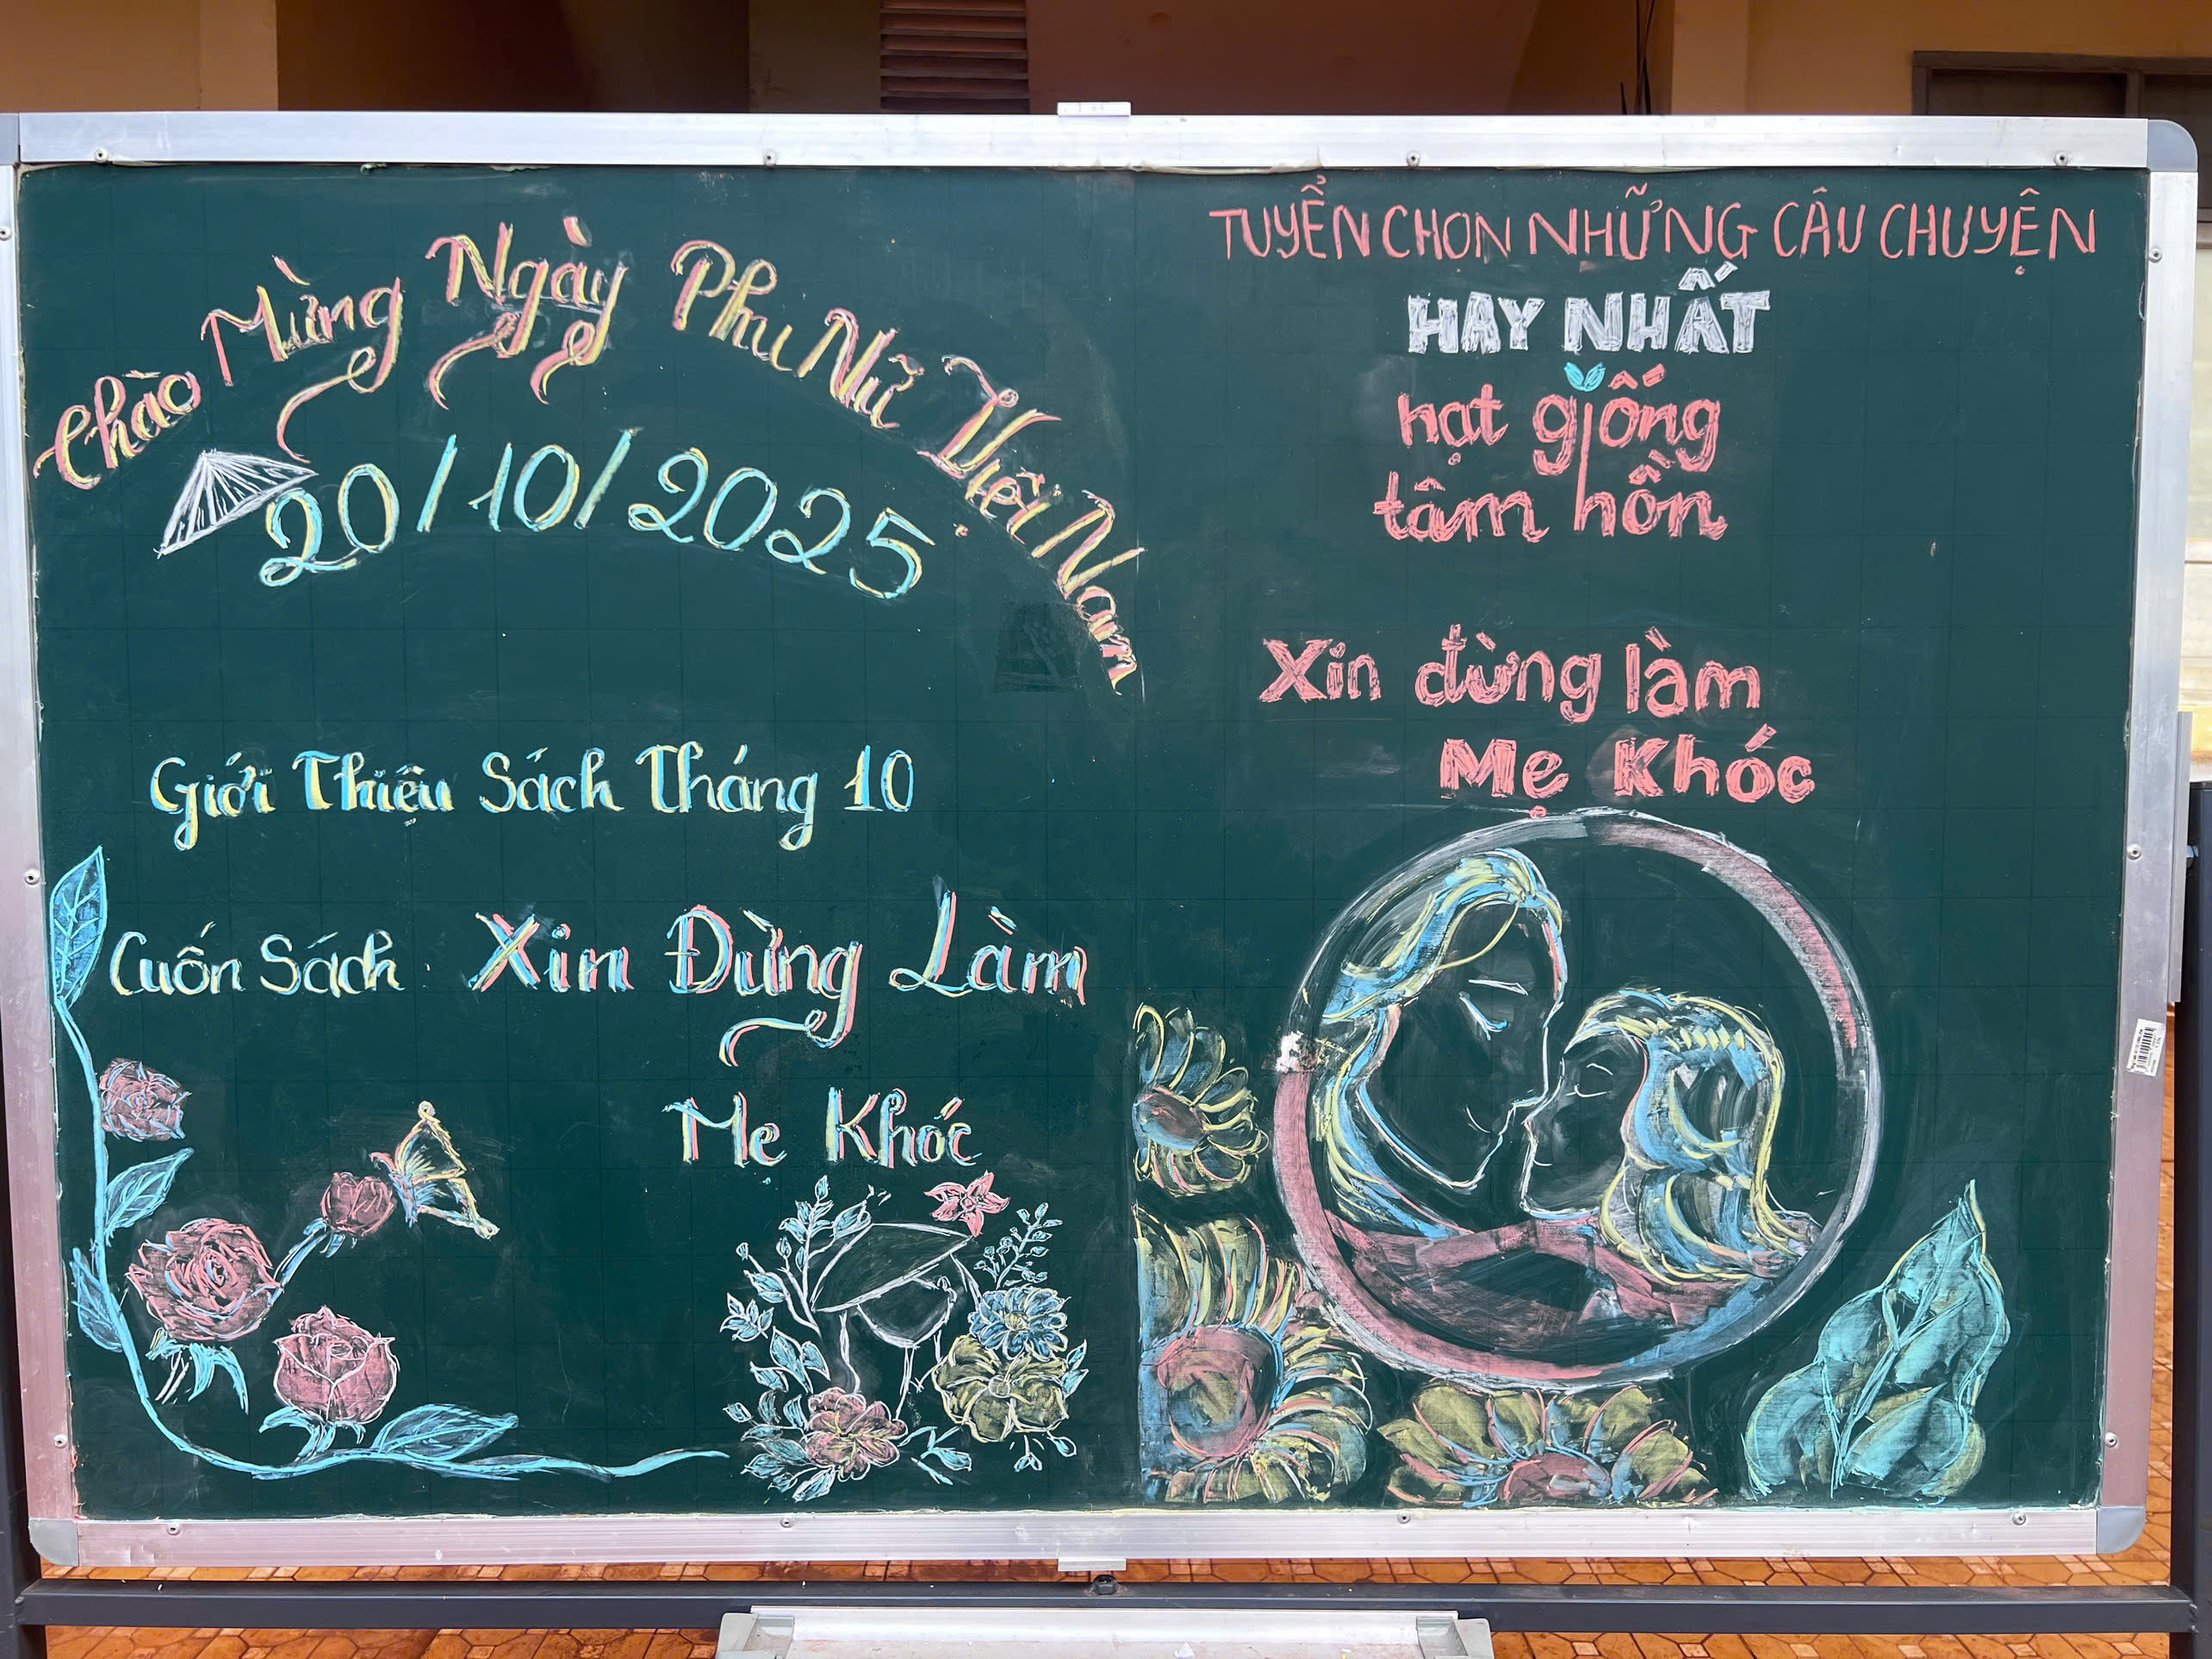 Chào Mừng Ngày Phu Nữ Việt Nam
20/10/2025.
Giới Thiệu Sách Tháng 10
Cuốn Sách. Xin Đừng Làm
Me Khóc
TUYỂN CHON NHỮNG CÂU CHUYỆN
HAY NHẤT
hạt giống
tâm hồn
Xin đừng làm
Mẹ Khóc